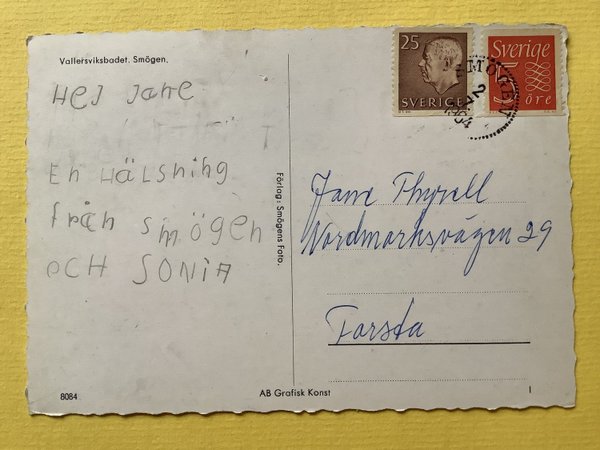 Vallersviksbadet. Smögen.
Hej Jane
En Hälsning
från Smögen
och Sonia
Förlag: Smögens Foto.
25
SVERIGE
Sverige
5 öre
2
1964
Jane Thyrell
Nordmarksvägen 29
Farsta
8084
AB Grafisk Konst
1